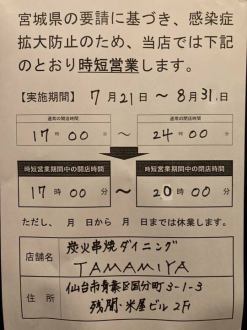 宮城県の要請に基づき、感染症
拡大防止のため、当店では下記
のとおり時短営業します。
【実施期間】 7月21日 ～ 8月31日
通常の開店時間 通常の閉店時間
17時00分 ～ 24時00分
時短営業期間中の開店時間 時短営業期間中の閉店時間
17時00分 ～ 20時00分
ただし、 月 日から 月 日までは休業します。
店舗名 炭火串焼ダイニング
TAMAMIYA
住所 仙台市青葉区国分町2-1-3
ビル2F